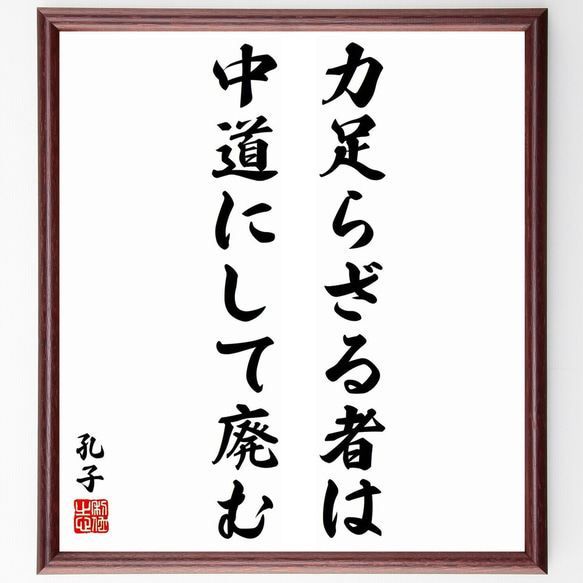 力足らざる者は
中道にして廃む
孔子